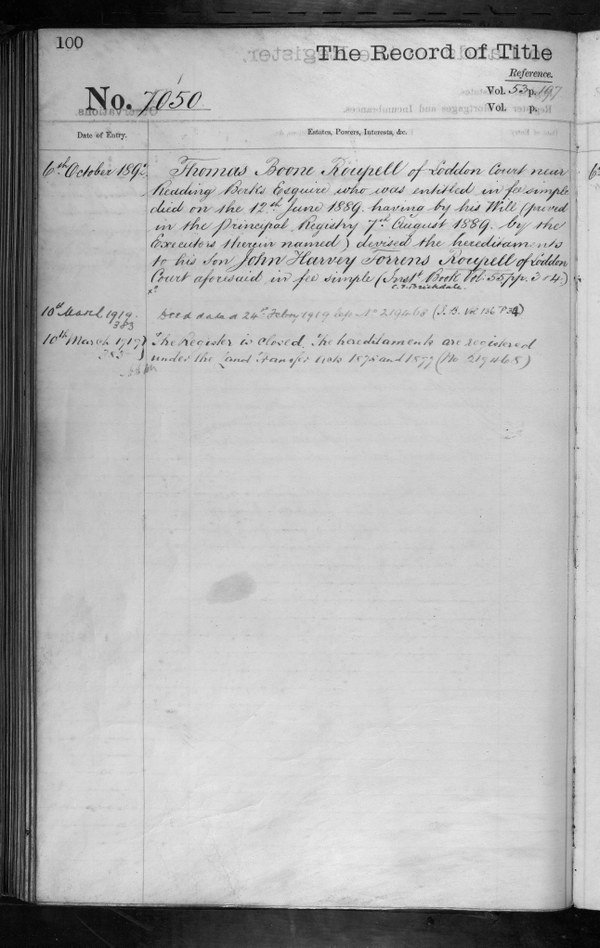 100
The Record of Title
Reference.
No. 7050
Vol. 53 p. 197
Vol. p.
Date of Entry.
Estates, Powers, Interests, &c.
6th October 1892. Thomas Boone Roupell of Loddon Court near
Reading Berks Esquire who was entitled in fee simple
died on the 12th June 1889 having by his Will (proved
in the Principal Registry 7th August 1889 by the
Executors therein named) devised the hereditaments
to his Son John Harvey Torrens Roupell of Loddon
Court aforesaid in fee simple (Inst. Book Vol. 55 pp. 3 & 4.)
C. F. Brickdale.
10th March 1919. Deed dated 24th Febry 1919 No 219468 (I.B. Vol 156 P 34)
383
10th March 1919 The Register is closed. The hereditaments are registered
383 under the Land Transfer Acts 1875 and 1897 (No 219468)